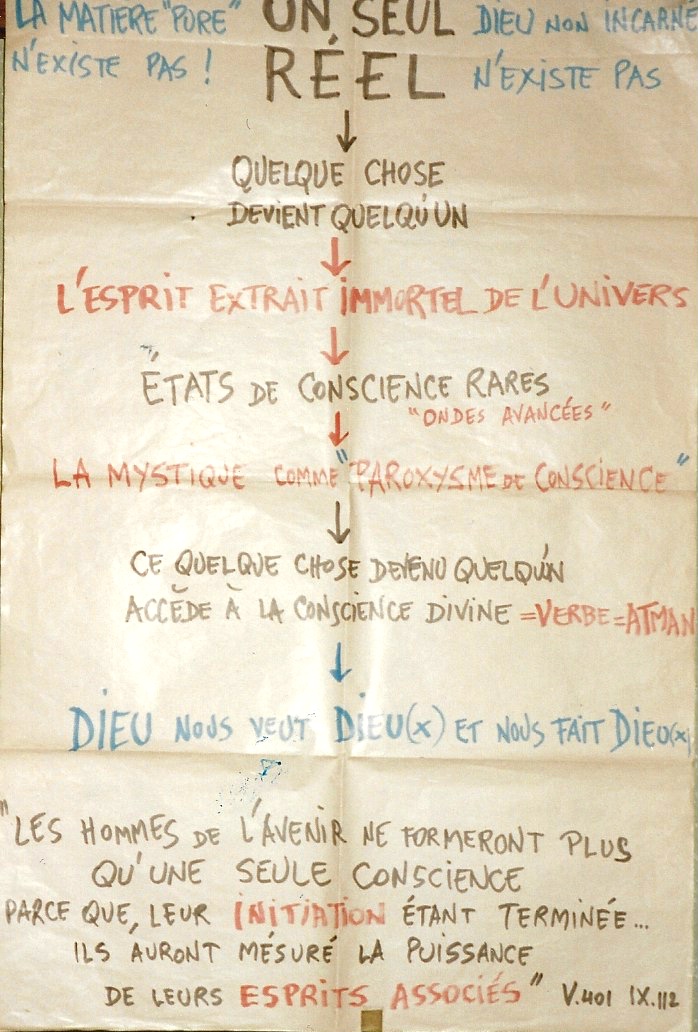 LA MATIERE "PURE"
N'EXISTE PAS !
UN SEUL
RÉEL
DIEU NON INCARNÉ
N'EXISTE PAS
QUELQUE CHOSE
DEVIENT QUELQU'UN
L'ESPRIT EXTRAIT IMMORTEL DE L'UNIVERS
ÉTATS DE CONSCIENCE RARES
"ONDES AVANCÉES"
LA MYSTIQUE COMME "PAROXYSME DE CONSCIENCE"
CE QUELQUE CHOSE DEVENU QUELQU'UN
ACCÈDE À LA CONSCIENCE DIVINE =VERBE=ATMAN
DIEU NOUS VEUT DIEU(x) ET NOUS FAIT DIEU(x)
"LES HOMMES DE L'AVENIR NE FORMERONT PLUS
QU'UNE SEULE CONSCIENCE
PARCE QUE, LEUR INITIATION ÉTANT TERMINÉE...
ILS AURONT MÉSURÉ LA PUISSANCE
DE LEURS ESPRITS ASSOCIÉS" V.401 IX.112